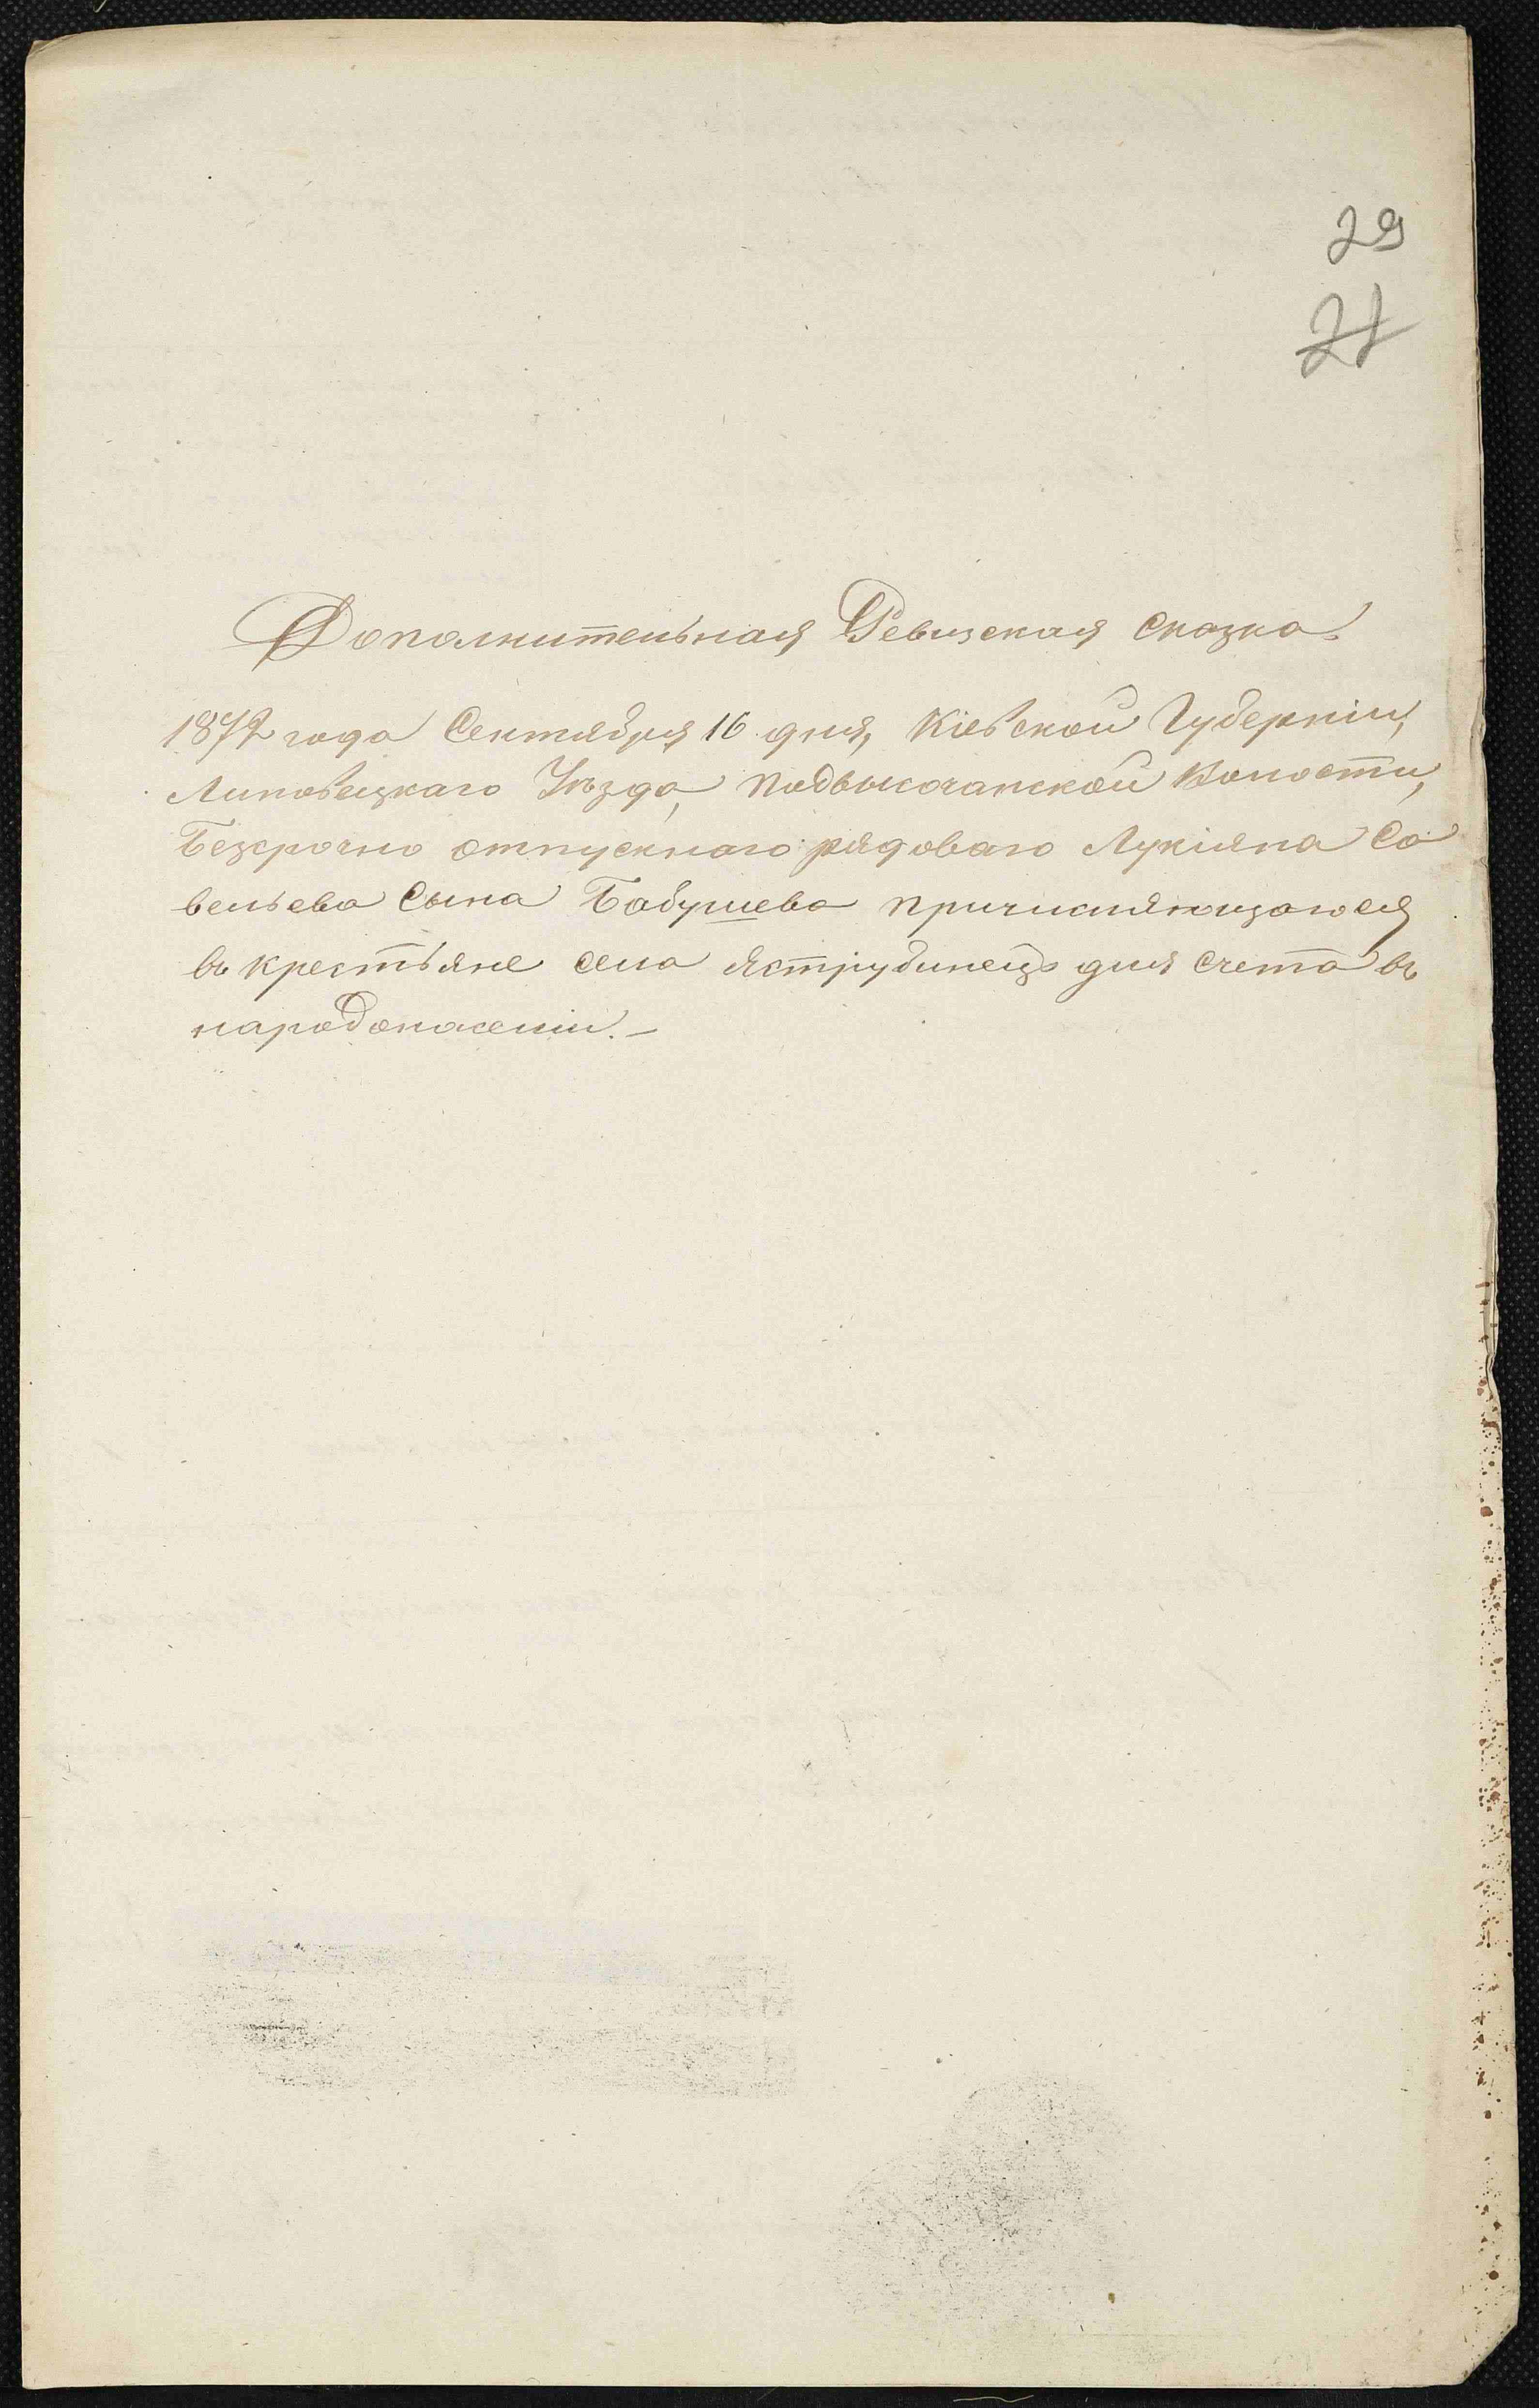 29
21
Дополнительная Ревизская сказка
1872 года Сентября 16 дня, Кіевской Губерніи,
Липовецкаго Уѣзда, Подвысочанской Волости,
Безсрочно отпускнаго рядоваго Лукіяна Са
вельева Сына Бабушева причисляющагося
въ крестьяне села Яструбинецъ для счета въ
народонаселеніи.–